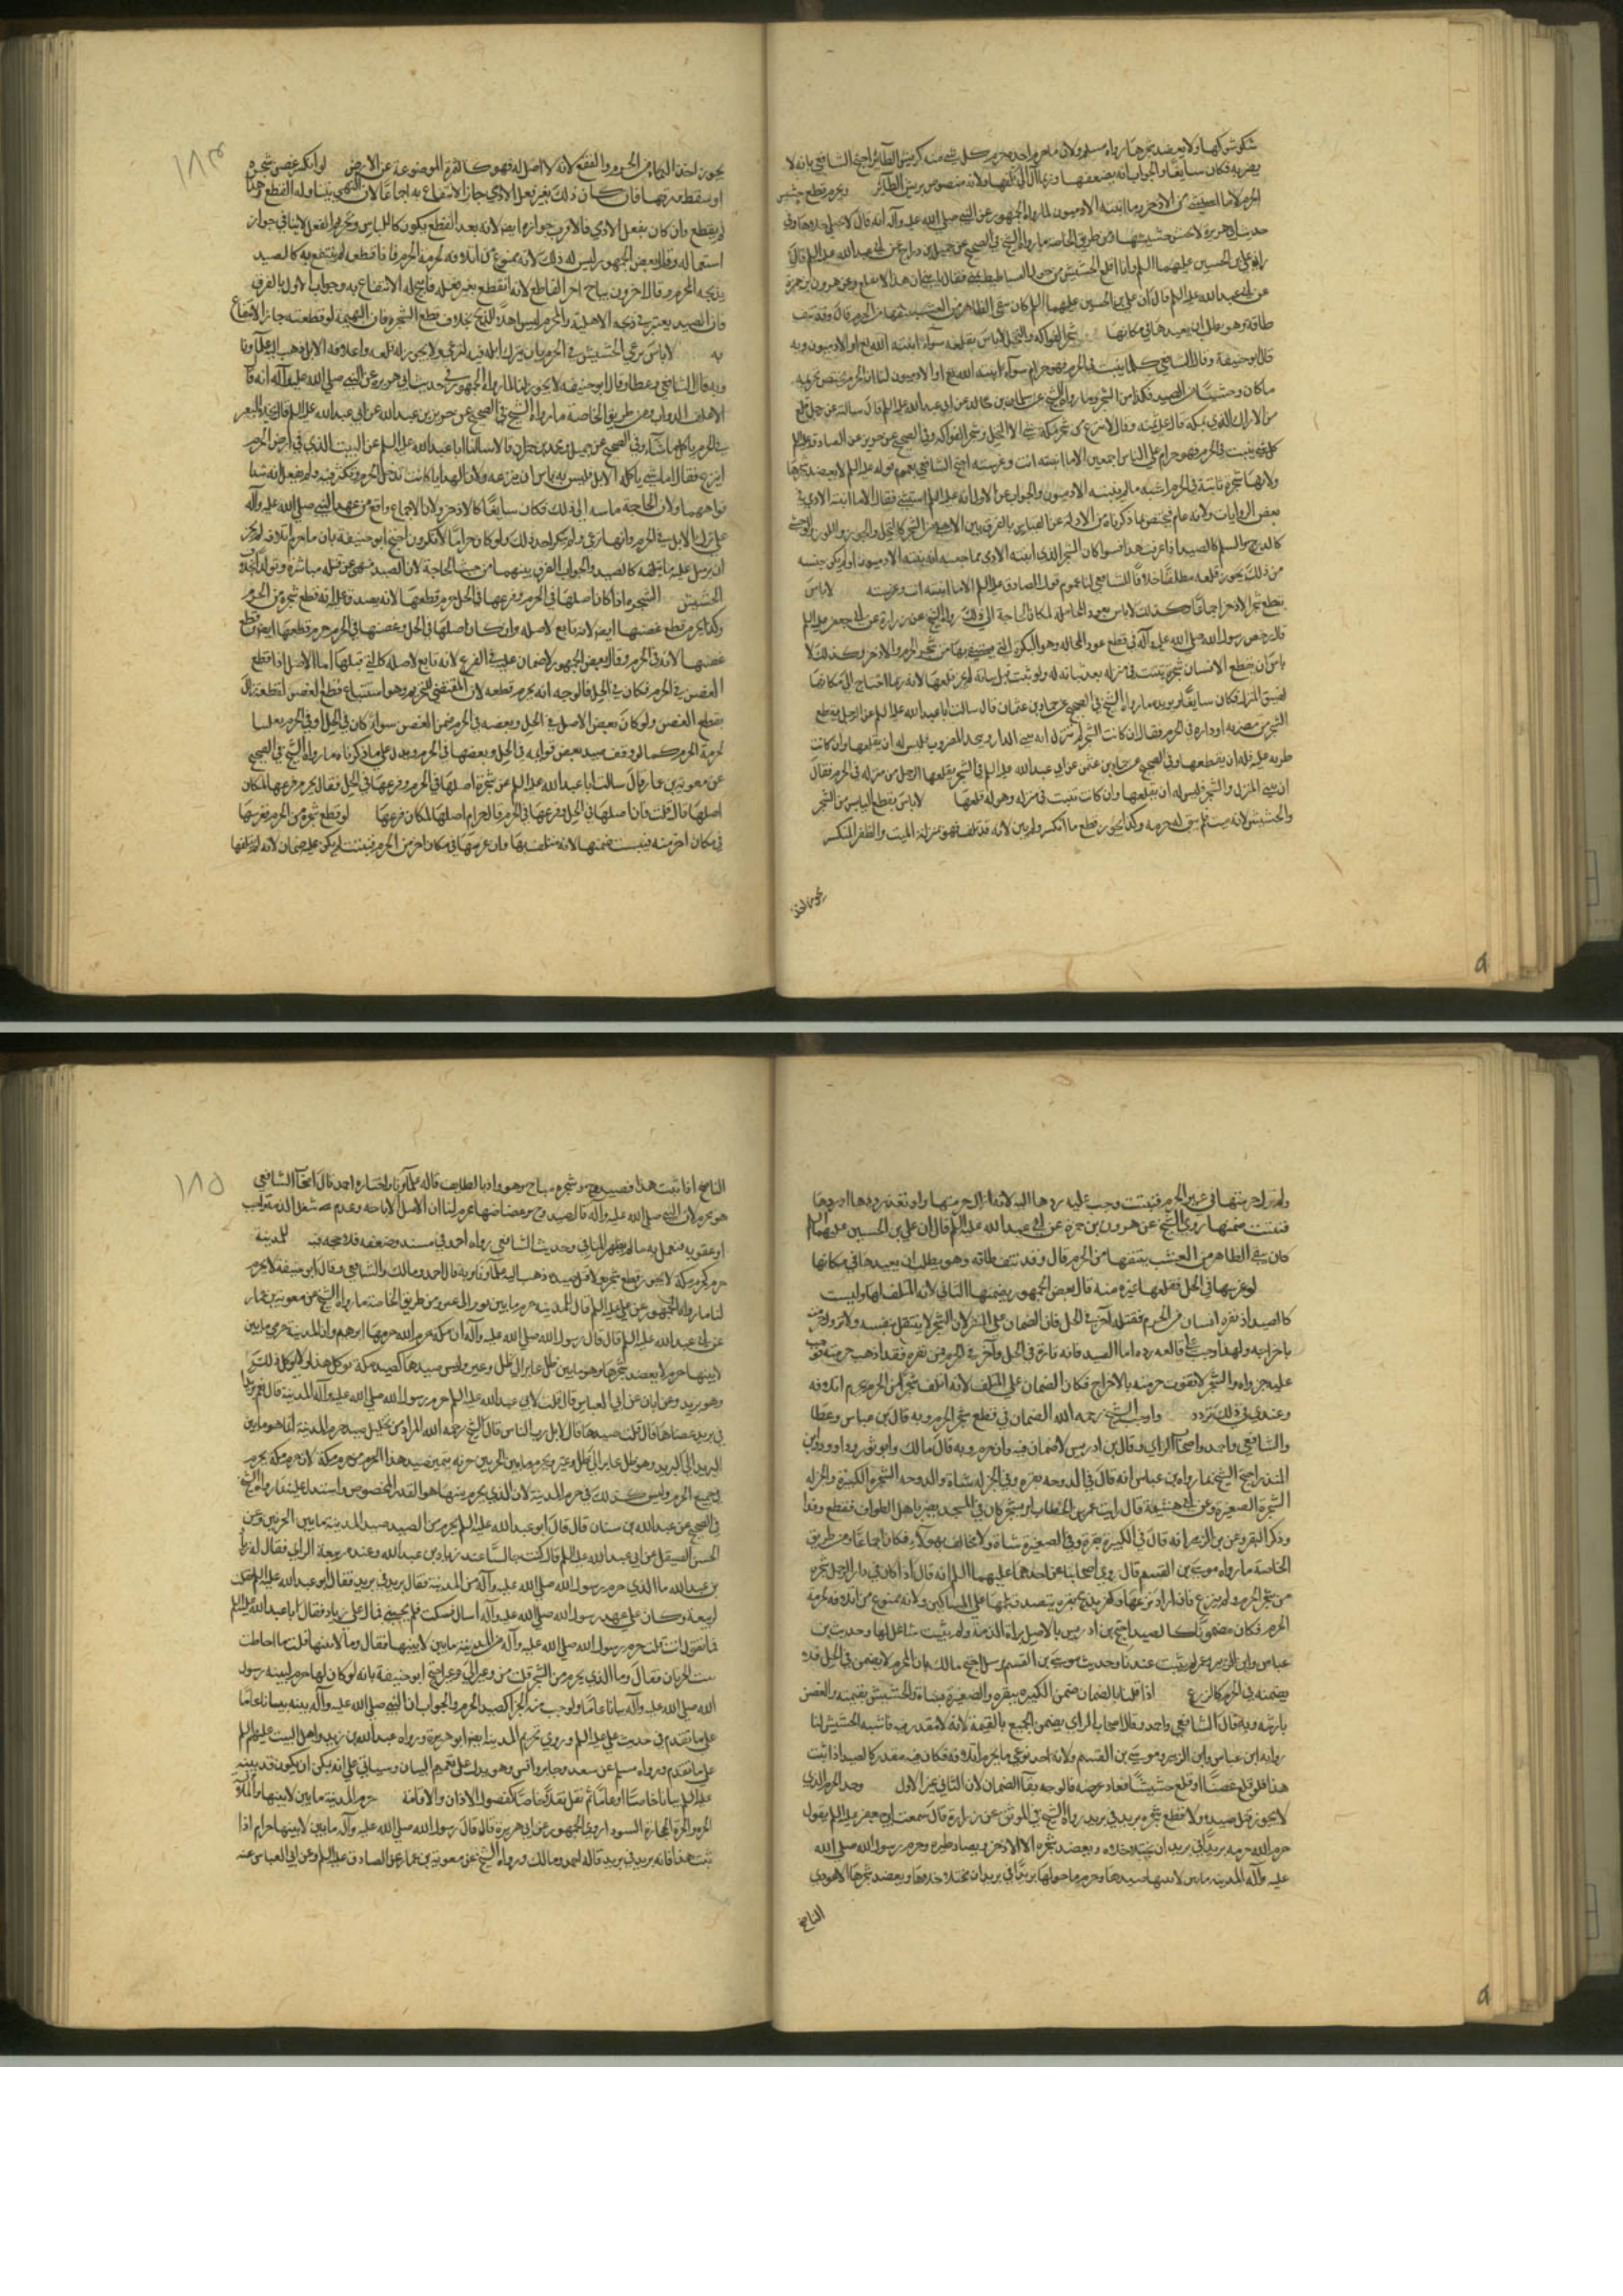 شكوشوكها ولا يعضد شجرها رواه مسلم ولان ما حرم اخذه حرم كل شئ منه كريش الطائر احتج الشافعي بانه لا
يضر به فكان سايغا والجواب انه يضعفها وربما آل الى تلفها ولانه منقوض بريش الطائر ويحرم قطع حشيش
الحرم الا ما استثنى من الاذخر وما انبته الادميون لما رواه الجمهور عن النبي صلى الله عليه وآله انه قال لا يختلى خلاها وفي
حديث ابي هريرة لا يحتش حشيشها ومن طريق الخاصة ما رواه الشيخ في الصحيح عن جميل بن دراج عن ابي عبد الله عليه السلم قال
رآني علي بن الحسين عليهما السلم وانا اقلع الحشيش من حول الفساطيط بمنى فقال يا بني ان هذا لا يقلع وعن هرون بن حمزة
عن ابي عبد الله عليه السلم قال ان علي بن الحسين عليهما السلم كان يتقى الطاقة من العشب ينتفها من الحرم قال وقد نتف
طاقة وهو يطلب ان يعيدها في مكانها شجر الفواكه والنخل لا باس بقلعه سواء انبته الله تع او الادميون وبه
قال ابو حنيفة وقال الشافعي كلما ينبت في الحرم فهو حرام سواء انبته الله تع او الادميون لنا ان الحرم يختص تحريمه
ما كان وحشيا من الصيد فكذا من الشجر وما رواه الشيخ عن سليمن بن خالد عن ابي عبد الله عليه السلم قال سالته عن رجل قلع
من الاراك الذي بمكة قال عليه ثمنه وقال لا ينزع من شجر مكة شئ الا النخل وشجر الفواكه وفي الصحيح عن حريز عن الصادق عليه السلم
كل شئ ينبت في الحرم فهو حرام على الناس اجمعين الا ما انبته انت وغرسته احتج الشافعي بعموم قوله عليه السلم لا يعضد شجرها
ولانها شجرة نابتة في الحرم اشبه ما لم ينبته الادميون والجواب عن الاول انه عليه السلم استثنى فقال الا ما انبته الادمي في
بعض الروايات ولانه عام فيختص بما ذكرناه من الادلة وعن القياس بالفرق بين الاهلي من الشجر كالنخل والجوز واللوز والوحشي
كالدوح والسلم كالصيد اذا عرفت هذا فسواء كان الشجر الذي انبته الادمي مما جنسه ان ينبته الادميون او لم يكن جنسه
من ذلك يجوز قلعه مطلقا خلافا للشافعي لنا عموم قول الصادق عليه السلم الا ما انبته انت وغرسته لا باس
بقطع شجر الاذخر اجماعا وكذلك لا باس بعودي المحالة لمكان الحاجة الى ذلك رواه الشيخ عن زرارة عن ابي جعفر عليه السلم
قال رخص رسول الله صلى الله عليه وآله في قطع عود المحالة وهو البكرة التي يستقى بها من شجر الحرم والاذخر وكذلك لا
باس ان يقطع الانسان شجرة تنبت في منزله بعد بنائه له ولو نبتت قبل بنائه لم يجز قلعها لانه ربما احتاج الى مكانها
لضيق المنزل فكان سايغا ويؤيده ما رواه الشيخ في الصحيح عن حماد بن عثمان قال سالت ابا عبد الله عليه السلم عن الرجل يقطع
الشجرة من مضربه او داره في الحرم فقال ان كانت الشجرة لم تزل قبل ان يبنى الدار او يتخذ المضرب فليس له ان يقلعها وان كانت
طرية عليه فله ان يقطعها وفي الصحيح عن حماد بن عثمن عن ابي عبد الله عليه السلم في الشجرة يقلعها الرجل من منزله في الحرم فقال
ان بنى المنزل والشجرة فيه فليس له ان يقلعها وان كانت نبتت في منزله وهو له فليقلعها لا باس بقطع اليابس من الشجر
والحشيش لانه ميت فلم يبق له حرمه وكذا يجوز قطع ما انكسر ولم يبن لانه قد تلف فهو بمنزلة الميت والظفر المنكسر
يجوز اخذ
١٨٣
يجوز اخذ الكماة من الحرم والفقع لانه لا اصل له فهو كالثمرة الموضوعة عن الارض لو انكسر غصن شجرة
او سقط ورقها فان كان ذلك بغير فعل الادمي جاز الانتفاع به اجماعا لان النهي يتناول القطع وهذا
لم يقطع وان كان بفعل الادمي فالاقرب جوازه ايضا لانه بعد القطع يكون كاليابس وتحريم الفعل لا ينافي جواز
استعماله وقال بعض الجمهور ليس له ذلك لانه ممنوع من اتلافه لحرمة الحرم فاذا قطعه لم ينتفع به كالصيد
يذبحه المحرم وقال اخرون يباح لغير القاطع لانه انقطع بغير فعله فابيح له الانتفاع به وجواب الاول بالفرق
فان الصيد يعتبر في ذبحه الاهلية والمحرم ليس اهلا للذبح بخلاف قطع الشجرة فان البهيمة لو قطعته جاز الانتفاع
به لا باس برعي الحشيش في الحرم بان يترك ابله فيه لترعى ولا يجوز له قلعه واعلافه الابل ذهب اليه علماؤنا
وبه قال الشافعي وعطا وقال ابو حنيفه لا يجوز لنا ما رواه الجمهور في حديث ابي هريرة عن النبي صلى الله عليه وآله انه قال
الا علف الدواب ومن طريق الخاصة ما رواه الشيخ في الصحيح عن حريز بن عبد الله عن ابي عبد الله عليه السلم قال يخلى البعير
في الحرم ياكل ما شاء وفي الصحيح عن جميل ومحمد بن حمران قالا سالنا ابا عبد الله عليه السلم عن النبت الذي في ارض الحرم
اينزع فقال اما شئ ياكله الابل فليس به باس ان ينزعه ولان الهدايا كانت تدخل الحرم وتكثر فيه ولم ينقل انه شد
افواهها ولان بالحاجة ماسة الى ذلك فكان سايغا كالاذخر ولان الاجماع واقع من عهد النبي صلى الله عليه وآله
على ترك الابل في الحرم وانها ترعى ولم ينكر احد ذلك ولو كان حراما لانكروه احتج ابو حنيفة بان ما حرم اتلافه لم يجز
ان يرسل عليه ما يتلفه كالصيد والجواب الفرق بينهما من حيث الحاجة لان الصيد منهى عن قتله مباشرة وتولدا بخلاف
الحشيش الشجرة اذا كان اصلها في الحرم وفرعها في الحل حرم قطعها لانه يصدق عليه انه قطع شجرة من الحرم
وكذا يحرم قطع غصنها ايضا لانه تابع لاصله وان كان اصلها في الحل وغصنها في الحرم حرم قطعها ايضا وقطع
غصنها لانه في الحرم وقال بعض الجمهور لا ضمان عليه في الفرع لانه تابع لاصله كالتي قبلها اما الاصل اذا قطع
الغصن في الحرم فكان في الحل فالوجه انه يحرم قطعه لان المقتضي للتحريم وهو استتباع قطع الغصن لقطعه زال
بقطع الغصن ولو كان بعض الاصل في الحل وبعضه في الحرم ضمن الغصن سواء كان في الحل او في الحرم تغليبا
لحرمة الحرم كما لو وقف صيد بعض قوايمه في الحل وبعضها في الحرم ويدل على ما ذكرناه ما رواه الشيخ في الصحيح
عن معوية بن عمار قال سالت ابا عبد الله عليه السلم عن شجرة اصلها في الحرم وفرعها في الحل فقال يحرم فرعها لمكان
اصلها قال قلت فان اصلها في الحل وفرعها في الحرم قال حرام اصلها لمكان فرعها لو قطع شجرة من الحرم فغرسها
في مكان اخر منه فيبست ضمنها لانه متلف لها وان غرسها في مكان اخر من الحرم فنبتت لم يكن عليه ضمان لانه لم يتلفها
ولم يزل حرمتها في غير الحرم فنبتت وجب عليه ردها اليه لانه ازال حرمتها ولو تعذر ردها او ردها
فتلفت ضمنها روى الشيخ عن هرون بن حمزة عن ابي عبد الله عليه السلم قال ان علي بن الحسين عليهما السلم
كان يتقى الطاقة من العشب ينتفها من الحرم قال وقد نتف طاقه وهو يطلب ان يعيدها في مكانها
لو غرسها في الحل فقلعها غيره منه قال بعض الجمهور يضمنها الثاني لانه المتلف لها وليست
كالصيد اذ نفره انسان من الحرم فقتله آخر في الحل فان الضمان على المنفر لان الشجر لا ينتقل بنفسه ولا تزول حرمته
باخراجه ولهذا وجب على قالعه رده اما الصيد فانه تارة في الحل وآخر في الحرم فمن نفره فقد اذهب حرمته فوجب
عليه جزاؤه والشجر لا تفوت حرمته بالاخراج فكان الضمان على المتلف لانه اتلف شجرا من الحرم يحرم اتلافه
وعندي في ذلك تردد واوجب الشيخ رحمه الله الضمان في قطع شجر الحرم وبه قال ابن عباس وعطا
والشافعي واحمد واصحاب الراي وقال ابن ادريس لا ضمان فيه وان حرم وبه قال مالك وابو ثور وداود وابن
المنذر احتج الشيخ بما رواه ابن عباس انه قال في الدوحه بقره وفي الجزله شاة والدوحه الشجرة الكبيرة والجزله
الشجرة الصغيرة وعن ابي هشيمة قال رايت عمر بن الخطاب امر بشجر كان في المسجد يضر باهل الطواف فقطع وفدا
وذكر البقر وعن ابن الزبير انه قال في الكبيرة بقرة وفي الصغيرة شاة ولا مخالف لهؤلاء فكان اجماعا ومن طريق
الخاصة ما رواه موسى بن القسم قال روى اصحابنا عن احدهما عليهما السلم انه قال اذا كان في دار الرجل شجرة
من شجر الحرم ولم ينزع فان اراد نزعها وكفر بذبح بقره يتصدق بلحمها على المساكين ولانه ممنوع من اتلافه لحرمة
الحرم فكان مضمونا كالصيد احتج ابن ادريس بالاصل براءة الذمة ولم يثبت شاغل لها وحديث ابن
عباس وابن الزبير وعمر لم يثبت عندنا وحديث موسى بن القسم مرسل احتج مالك بان المحرم لا يضمن في الحل فلا
يضمنه في الحرم كالزرع اذا قلنا بالضمان ضمن الكبيره ببقره والصغيرة بشاة والحشيش بقيمته والغصن
بارشه وبه قال الشافعي واحمد وقال اصحاب الراي يضمن الجميع بالقيمة لانه لا مقدر فيه فاشبه الحشيش لنا
رواية ابن عباس وابن الزبير وموسى بن القسم ولانه احد نوعي ما يحرم اتلافه فكان فيه مقدر كالصيد اذا ثبت
هذا فلو قلع غصنا او قلع حشيشا فعاد عوضه فالوجه بقاء الضمان لان الثاني غير الاول وحد الحرم الذي
لا يجوز قتل صيده ولا قطع شجره بريد في بريد رواه الشيخ في الموثق عن زرارة قال سمعت ابا جعفر عليه السلم يقول
حرم الله حرمه بريدا في بريد ان يختلى خلاه ويعضد شجره الا الاذخر ويصاد طيره وحرم رسول الله صلى الله
عليه وآله المدينة ما بين لابتيها صيدها وحرم ما حولها بريدا في بريد ان يختلى خلاؤها ويعضد شجرها الا عودي
الناضح
١٨٥
الناضح اذا ثبت هذا فصيد وج وشجره مباح وهو واد بالطايف قاله علماؤنا واختاره احمد قال اصحاب الشافعي
هو محرم لان النبي صلى الله عليه وآله قال صيد وج وعضاهها محرم لنا ان الاصل الاباحه وعدم شغل الذمة بواجب
او عقوبة فنعمل به ما لم يظهر المنافي وحديث الشافعي رواه احمد في مسنده وضعفه فلا حجه فيه للمدينة
حرم كحرم مكة لا يجوز قطع شجره ولا قتل صيده ذهب اليه علماؤنا وبه قال احمد ومالك والشافعي وقال ابو حنيفة لا يحرم
لنا ما رواه الجمهور عن علي عليه السلم قال المدينة حرم ما بين ثور الى عير ومن طريق الخاصة ما رواه الشيخ عن معوية بن عمار
عن ابي عبد الله عليه السلم قال قال رسول الله صلى الله عليه وآله ان مكة حرم الله حرمها ابرهيم وان المدينة حرمي ما بين
لابتيها حرم لا يعضد شجرها وهو ما بين ظل عاير الى ظل وعير وليس صيدها كصيد مكة يوكل هذا ولا يوكل ذلك
وهو بريد وعن ابان عن ابي العباس قال قلت لابي عبد الله عليه السلم حرم رسول الله صلى الله عليه وآله المدينة قال نعم بريدا
في بريد عضاها قال قلت صيدها قال لا يكذب الناس قال الشيخ رحمه الله المراد من تحليل صيد حرم المدينة انما هو ما بين
البريد الى البريد وهو ظل عاير الى ظل وعير ويحرم ما بين الحرتين حرته يتميز صيد هذا الحرم من حرم مكة لان حرم مكة يحرم
في جميع الحرم وليس كذلك في حرم المدينة لان الذي يحرم منها هو القدر المخصوص واستدل عليه بما رواه الشيخ
في الصحيح عن عبد الله بن سنان قال قال ابو عبد الله عليه السلم يحرم من الصيد صيد المدينة ما بين الحرتين وعن
الحسن الصيقل عن ابي عبد الله عليه السلم قال كنت جالسا عند زياد بن عبد الله وعنده ربيعة الراي فقال له زياد
بن عبد الله ما الذي حرم رسول الله صلى الله عليه وآله من المدينة فقال بريد في بريد فقال ابو عبد الله عليه السلم فقلت
لربيعة وكان على عهد رسول الله صلى الله عليه وآله اميال فسكت فلم يجبني فمال علي زياد فقال ابا عبد الله عليه السلم
فما تقول انت قلت حرم رسول الله صلى الله عليه وآله من المدينة ما بين لابتيها فقال وما لابتيها قلت ما احاطت
به الحرتان فقال وما الذي يحرم من الشجر قلت من وعير الى وعير احتج ابو حنيفة بانه لو كان لها حرم لبينه رسول
الله صلى الله عليه وآله بيانا عاما ولوجب فيه الجزا كصيد الحرم والجواب ان النبي صلى الله عليه وآله بينه بيانا عاما
على ما تقدم في حديث علي عليه السلم وروى تحريم المدينة ايضا ابو هريرة ورواه عبد الله بن زيد واهل البيت عليهم السلم
على ما تقدم ورواه مسلم عن سعد وجابر وانس وهو يدل على تعميم البيان وسياتي على انه يمكن ان يكون قد بينه
عليه السلم بيانا خاصا او عاما ثم نقل نقلا خاصا كفصول الاذان والاقامة حرم المدينة ما بين لابتيها واللابة
الحرة والحرة الحجارة السود روى الجمهور عن ابي هريرة قال قال رسول الله صلى الله عليه وآله ما بين لابتيها حرام اذا
ثبت هذا فانه بريد في بريد قاله احمد ومالك ورواه الشيخ عن معوية بن عمار عن الصادق عليه السلم وعن ابي العباس عنه